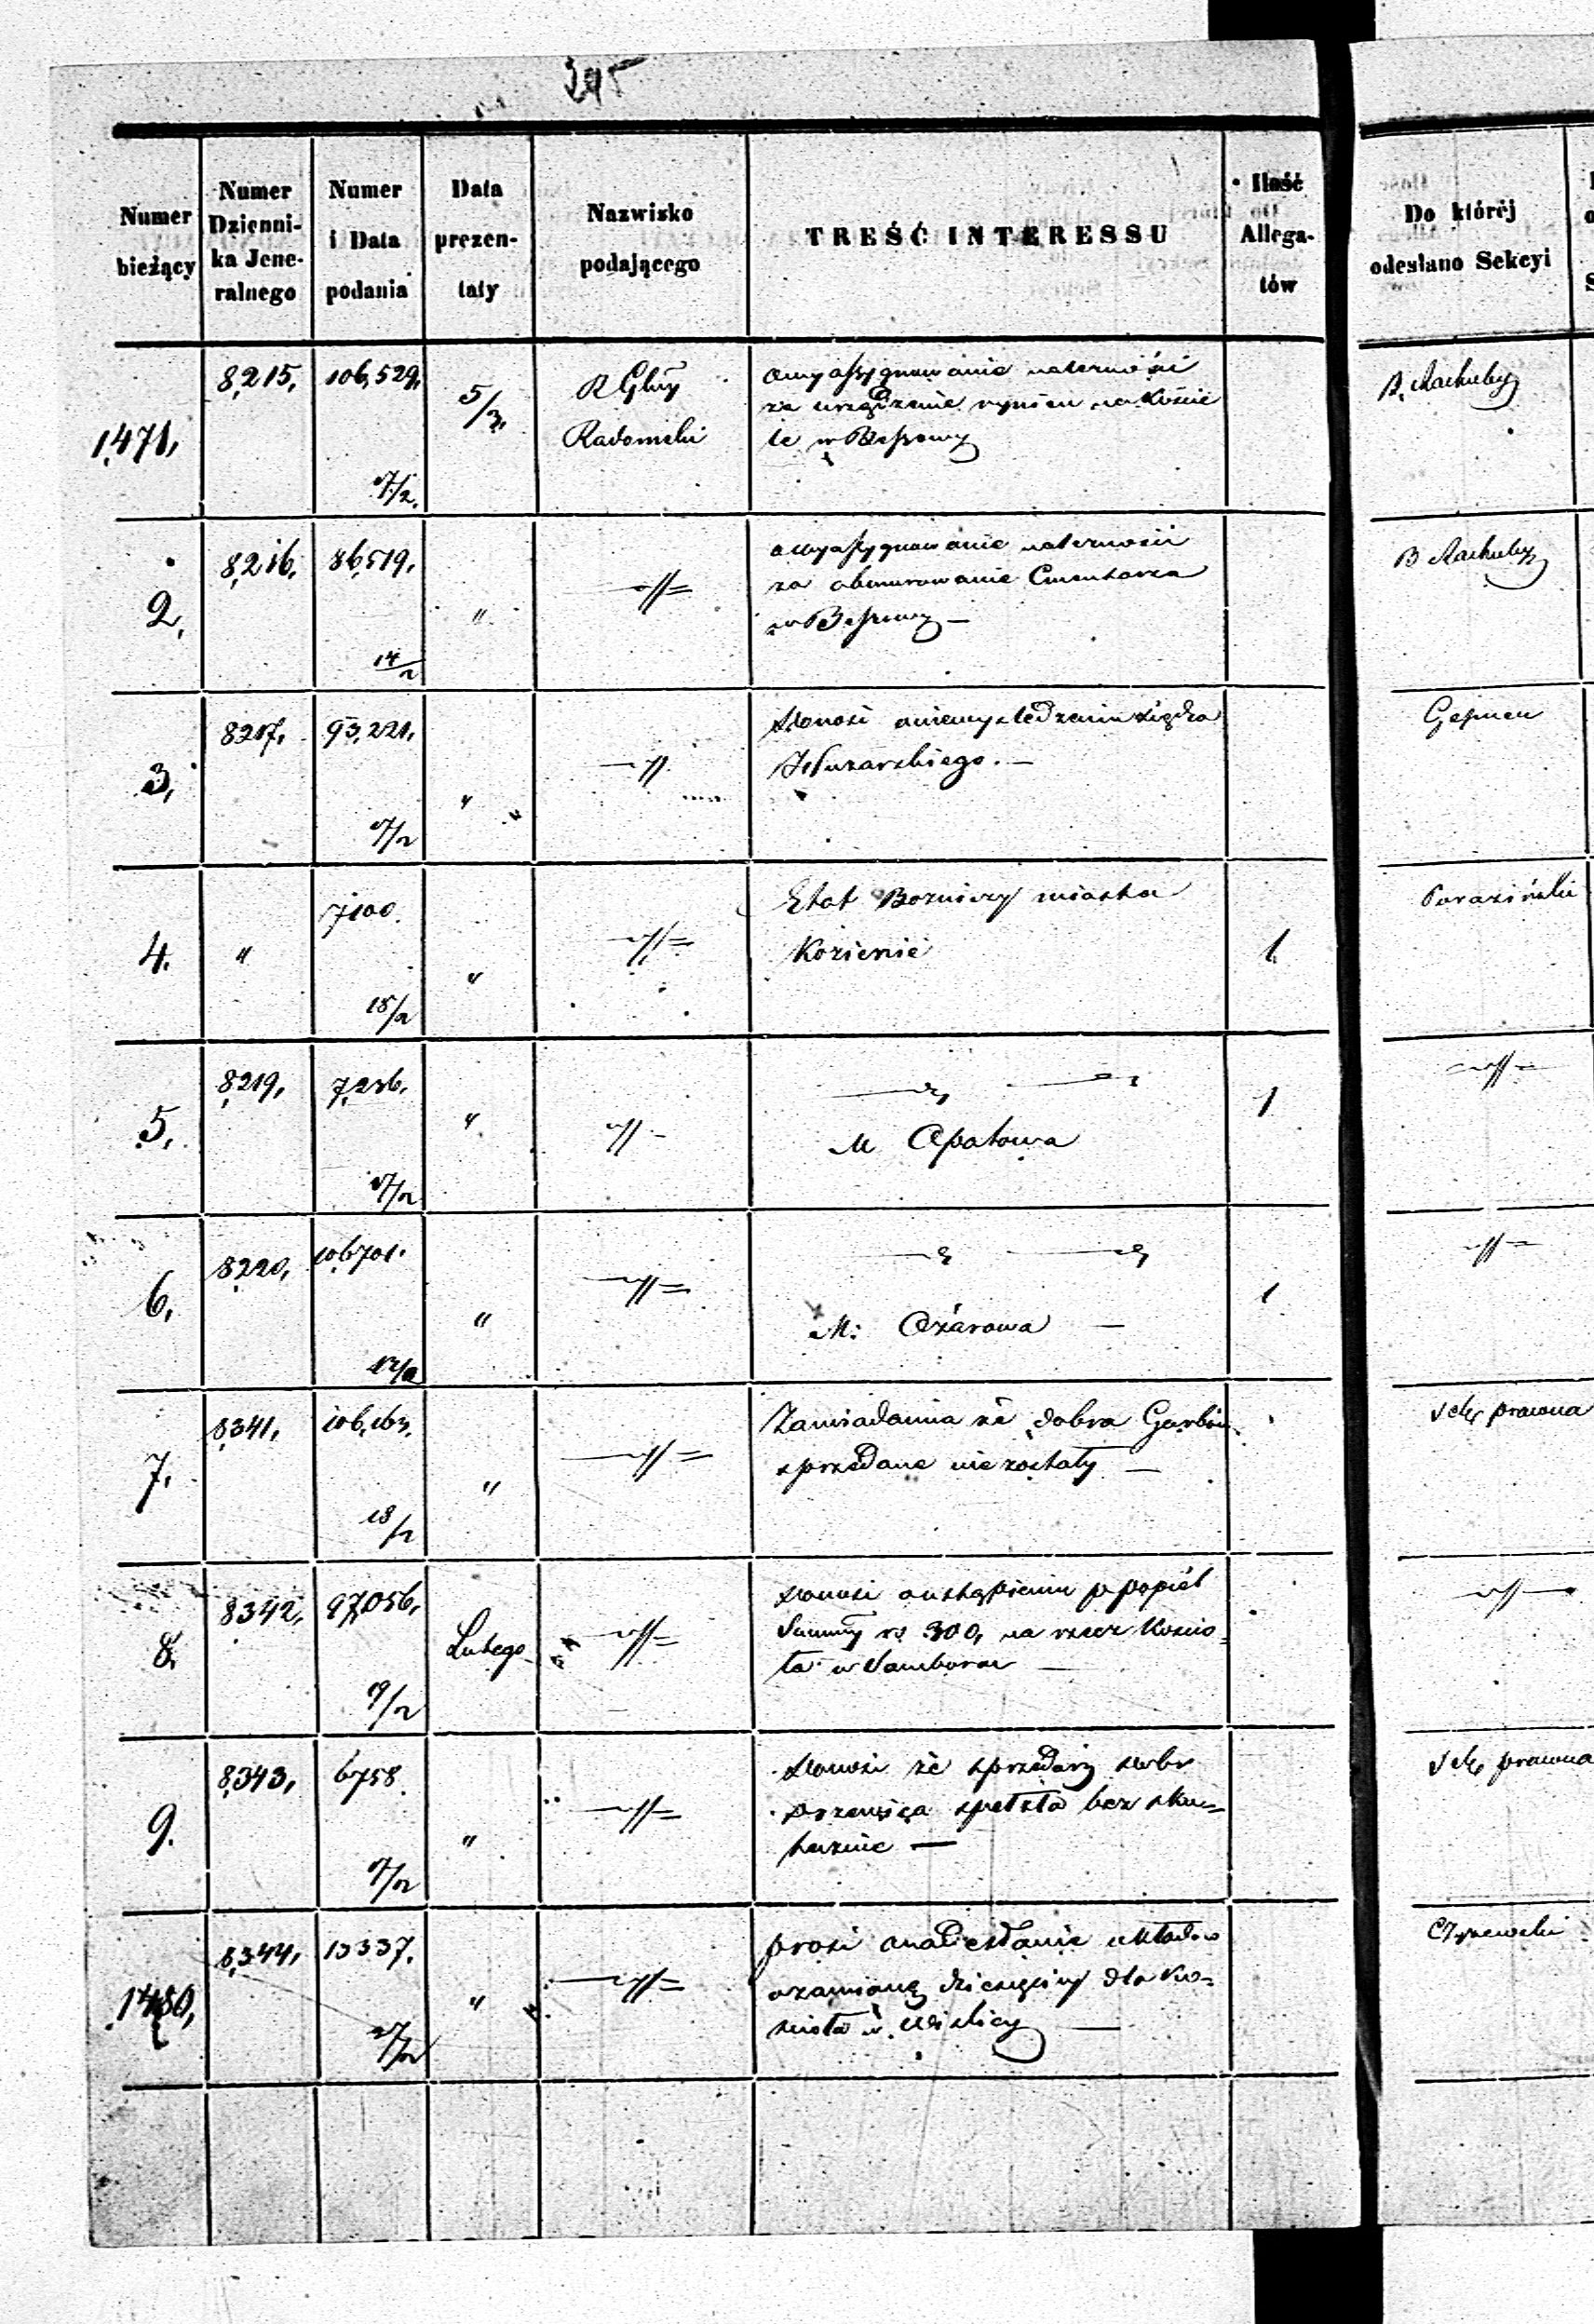 295
Numer bieżący | Numer Dzienni-ka Jene-ralnego | Numer i Data podania | Data prezen-taty | Nazwisko podającego | TREŚĆ INTERESSU | Ilość Allega-tów | Do któréj odesłano Sekcyi
1471, | 8,215, | 106,529, 17/2. | 5/3. | R Głny Radomski | owyassygnowanie należności
za urządzenie rynien na Koście
le w Bessowy | B. Rachuby
2, | 8,216, | 86,519. 14/2 | " | owyassygnowanie należności
za obmurowanie Cmentarza
w Bessowy — | B Rachuby
3, | 8217, | 93,221. 17/2 | " | donosi oniewysledzeniu xiędza
| Gessnen
4. | " | 7100. 18/2 | " | Etat Bożnicy miasta
Kozienic | 1 | Paraziński
5, | 8,219, | 7,236. 17/2 | " | M Opatowa | 1
6, | 8,220, | 106701. 17/2 | " | M: Ożarowa — | 1
7, | 8,341, | 106,163. 18/2 | " | Zawiadamia że dobra Garbów
sprzedane nie zostały — | Sek prawna
8. | 8342, | 97,056, 19/2 | Lutego | donosi oustąpieniu p popiel
Summy rs 300, na rzecz Kościo=
ła w Samborcu —
9. | 8,343, | 6758. 17/2 | " | donosi że sprzedaż dobr
spełzła bez sku=
tecznie — | Sek prawna
1480, | 8,344, | 13337. 27/2 | " | prosi onadesłanie układow
ozamianę dziesięciny dla Ko=
scioła w Wislicy — | Czyzewski